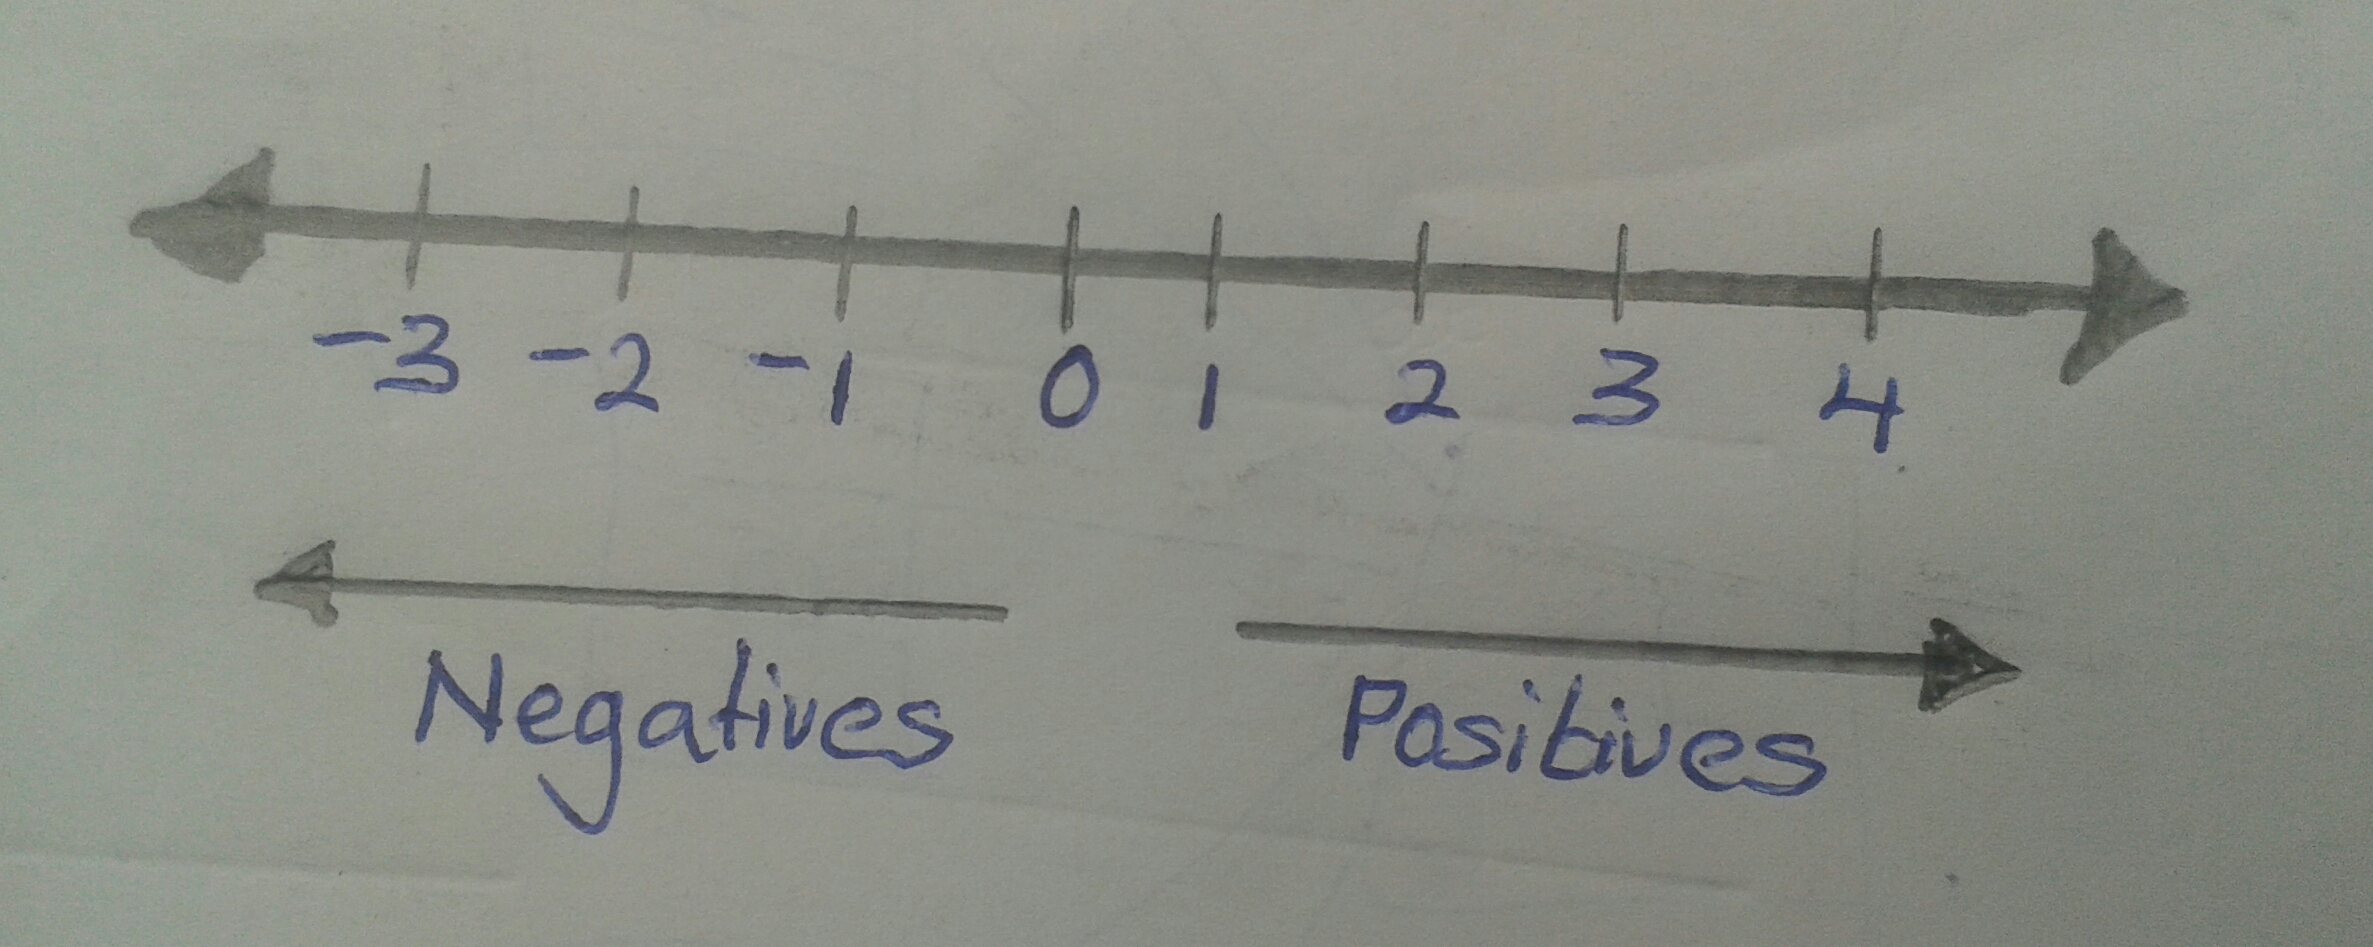 -3 -2 -1 0 1 2 3 4
Negatives Positives